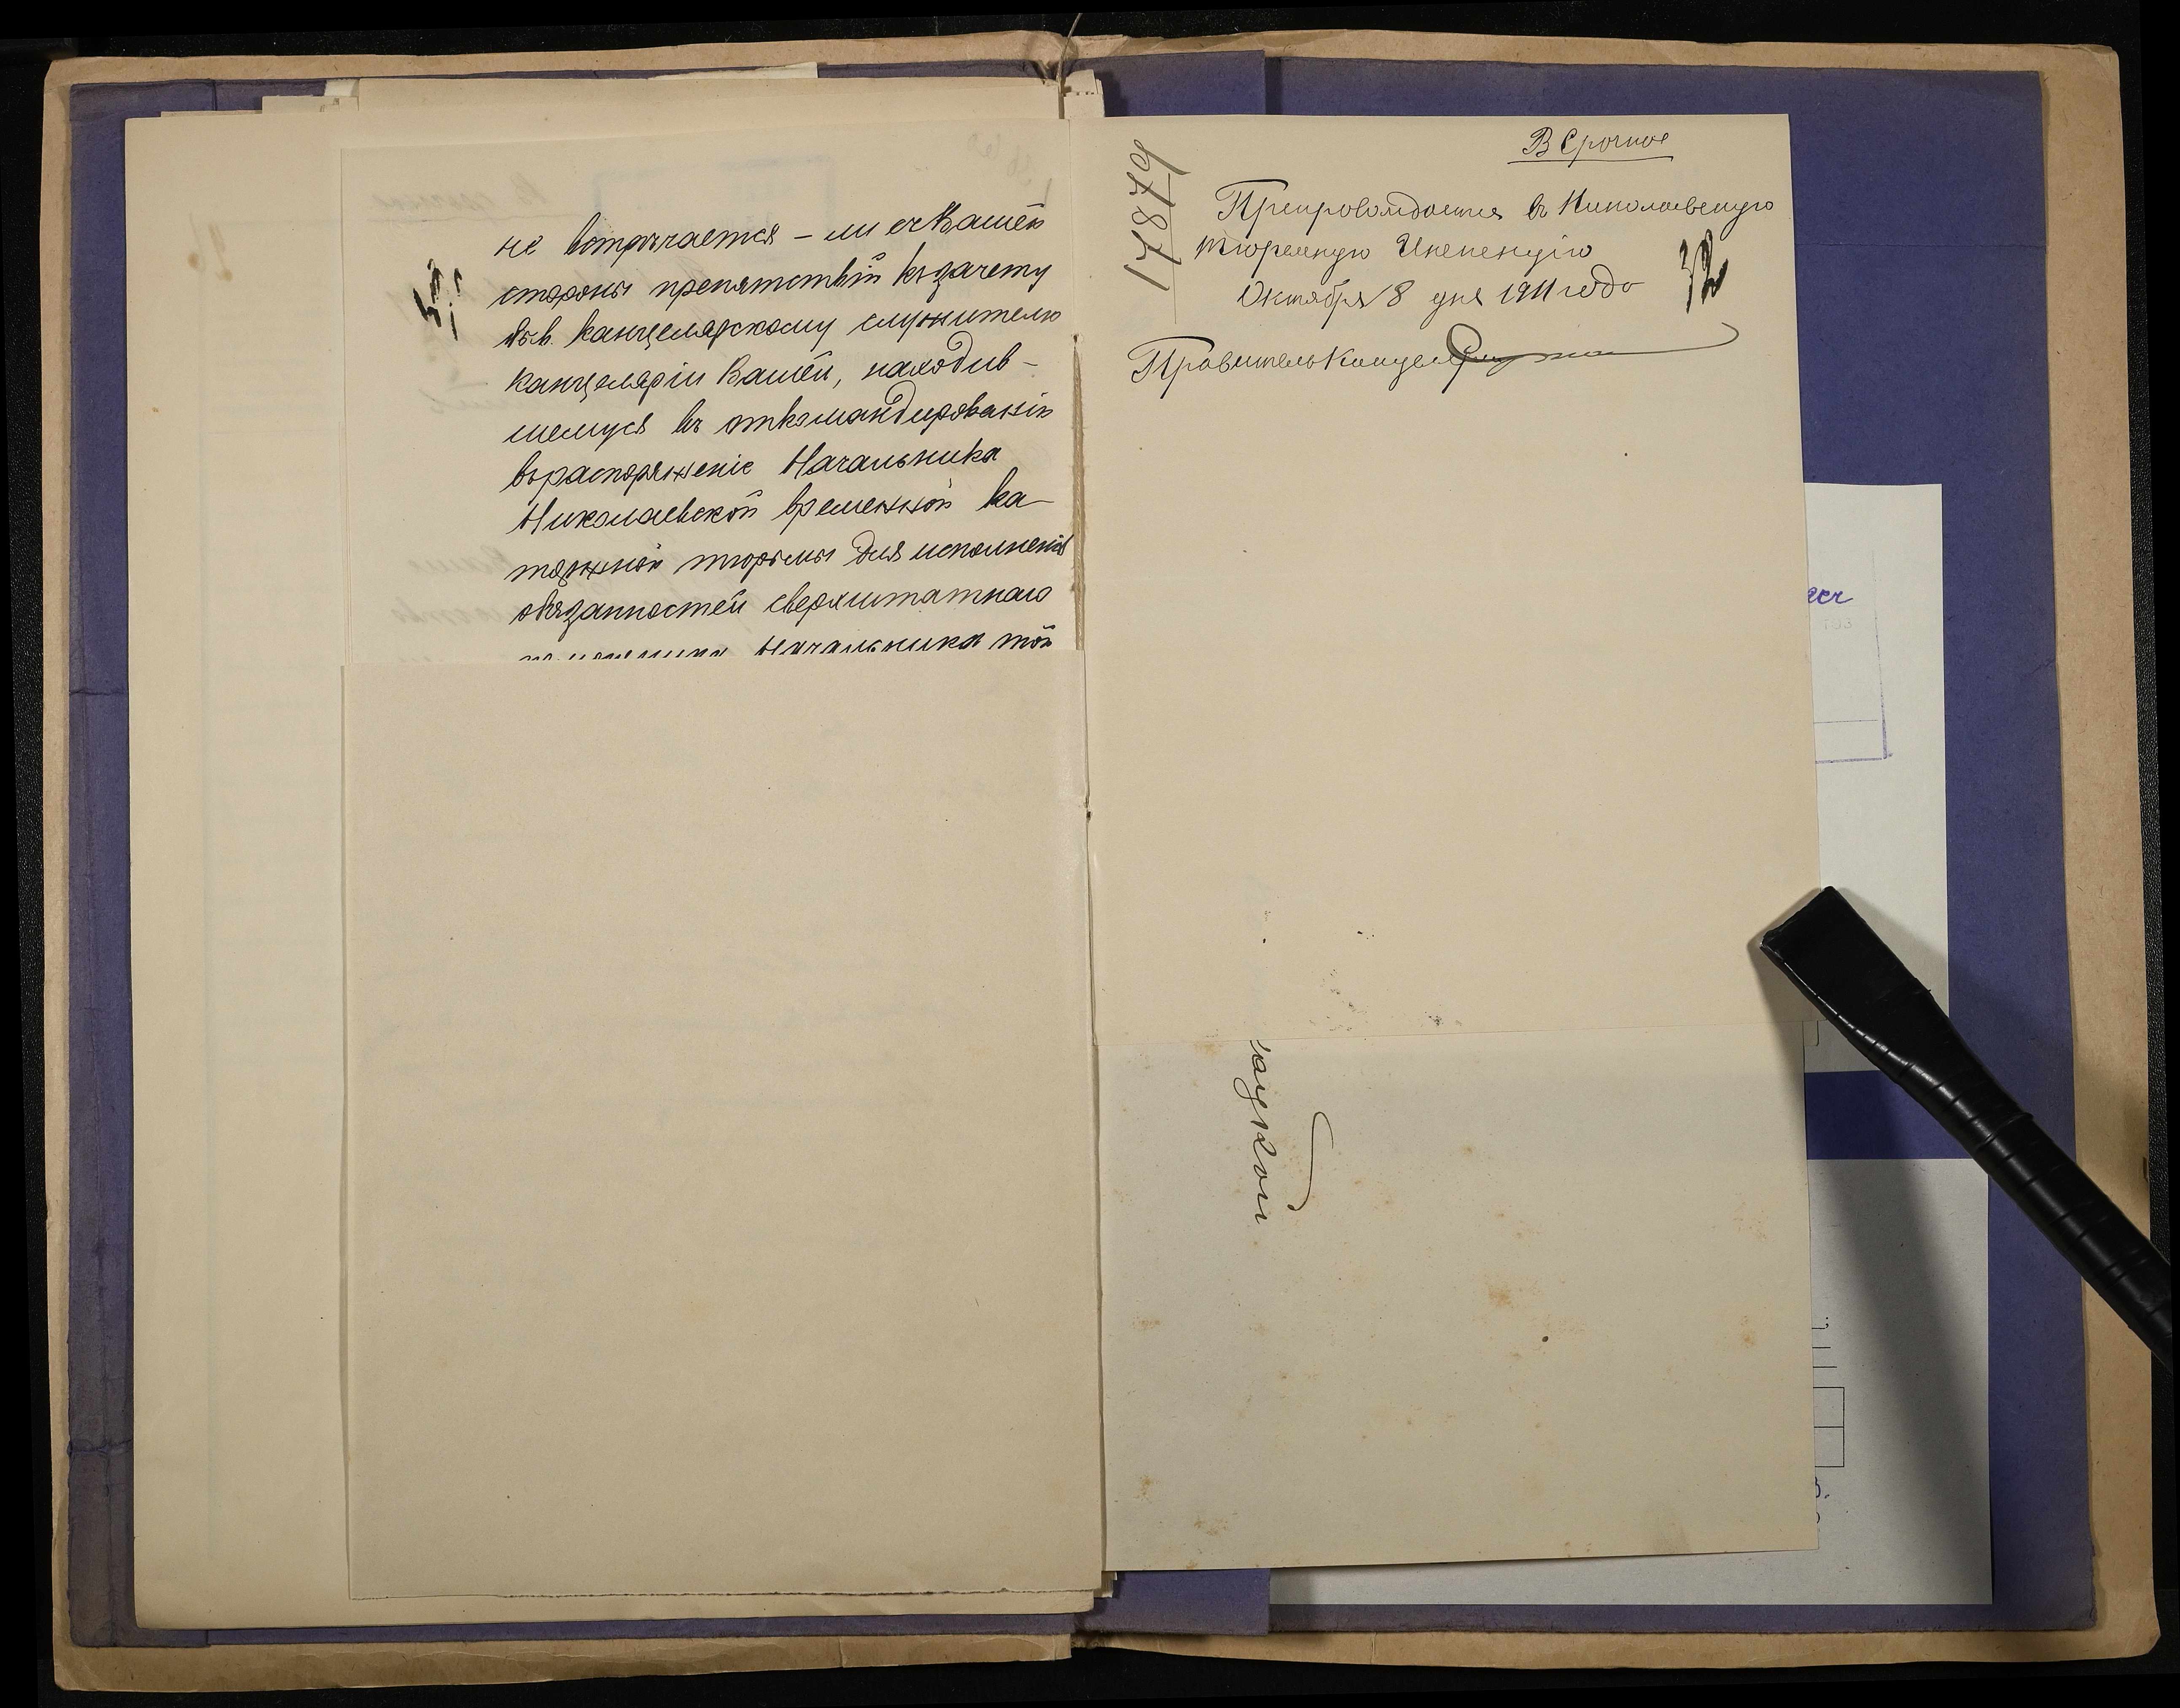 не встрѣчается – ли съ Вашей
стороны препятствій къ зачету
канцелярскому служителю
канцеляріи Вашей, находив-
шемуся въ откомандированіи
въ распоряженіе Начальника
Николаевской временной ка-
торжной тюрьмы для исполненія
обязанностей сверхштатнаго
Начальника той
17879
В Срочное
Препровождается въ Николаевскую
тюремную Инспекцію
Октября 8 дня 1911 года
32
Правитель Канцел